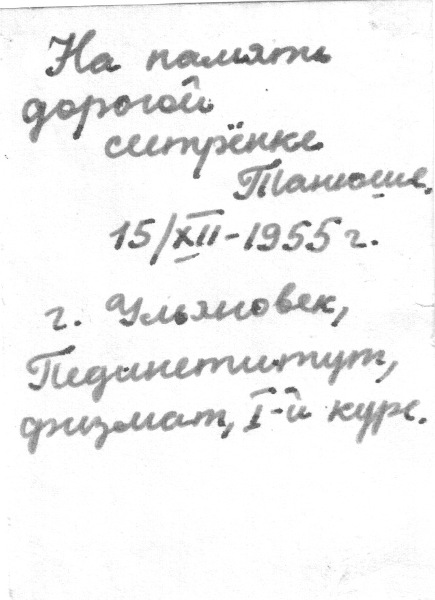 На память
дорогой
систрёнке
Танюше.
15/XII-1955 г.
г. Ульяновск,
Пединститут,
физмат, I-й курс.